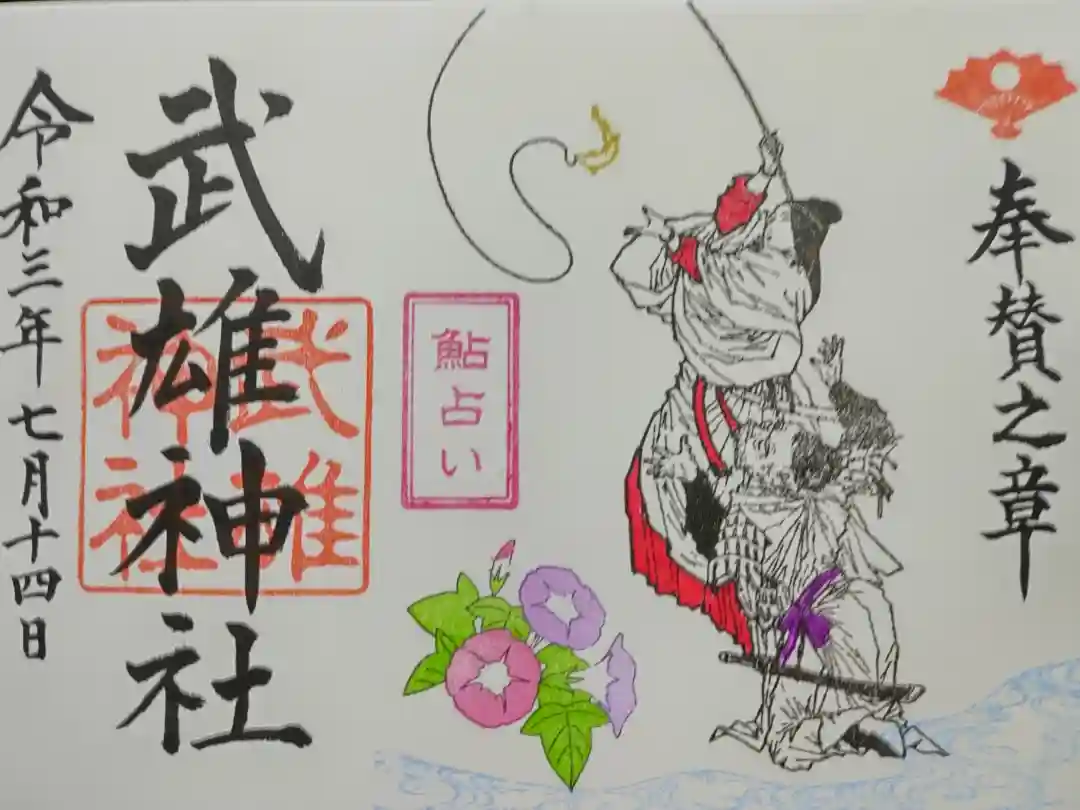 奉賛之章
鮎占い
武雄神社
武雄神社
令和三年七月十四日